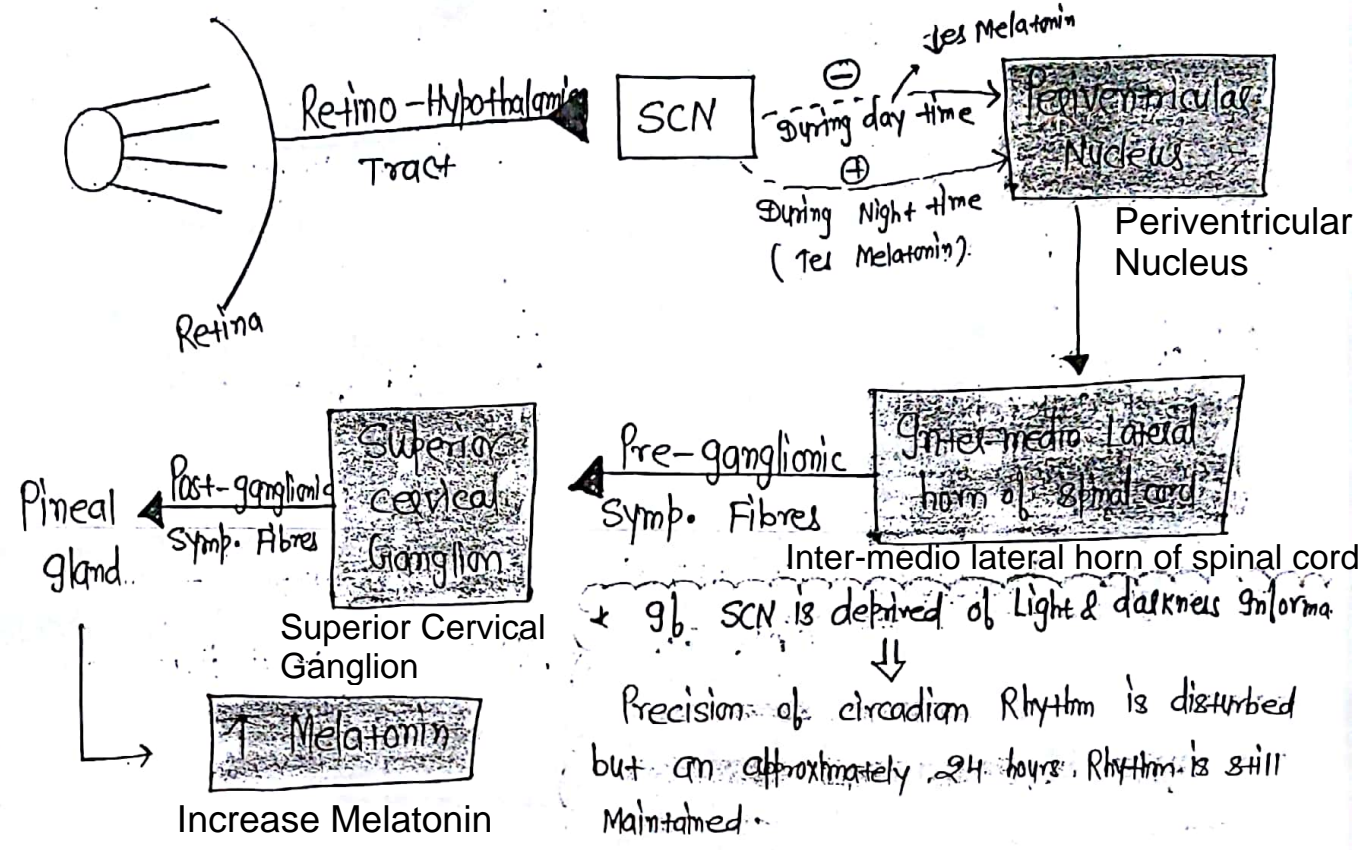 ↓es Melatonin
Retino-Hypothalamic
Tract
SCN
⊖
During day time
⊕
During Night time
(↑es Melatonin).
Periventricular
Nucleus
Periventricular
Nucleus
Retina
Inter-medio Lateral
horn of spinal cord
Inter-medio lateral horn of spinal cord
Pre-ganglionic
Symp. Fibres
Superior
Cervical
Ganglion
Superior Cervical
Ganglion
Post-ganglionic
Symp. Fibres
Pineal
gland
↑ Melatonin
Increase Melatonin
* If SCN is deprived of Light & darkness Informa
⇓
Precision of circadian Rhythm is disturbed
but an approximately 24 hours Rhythm is still
Maintained.